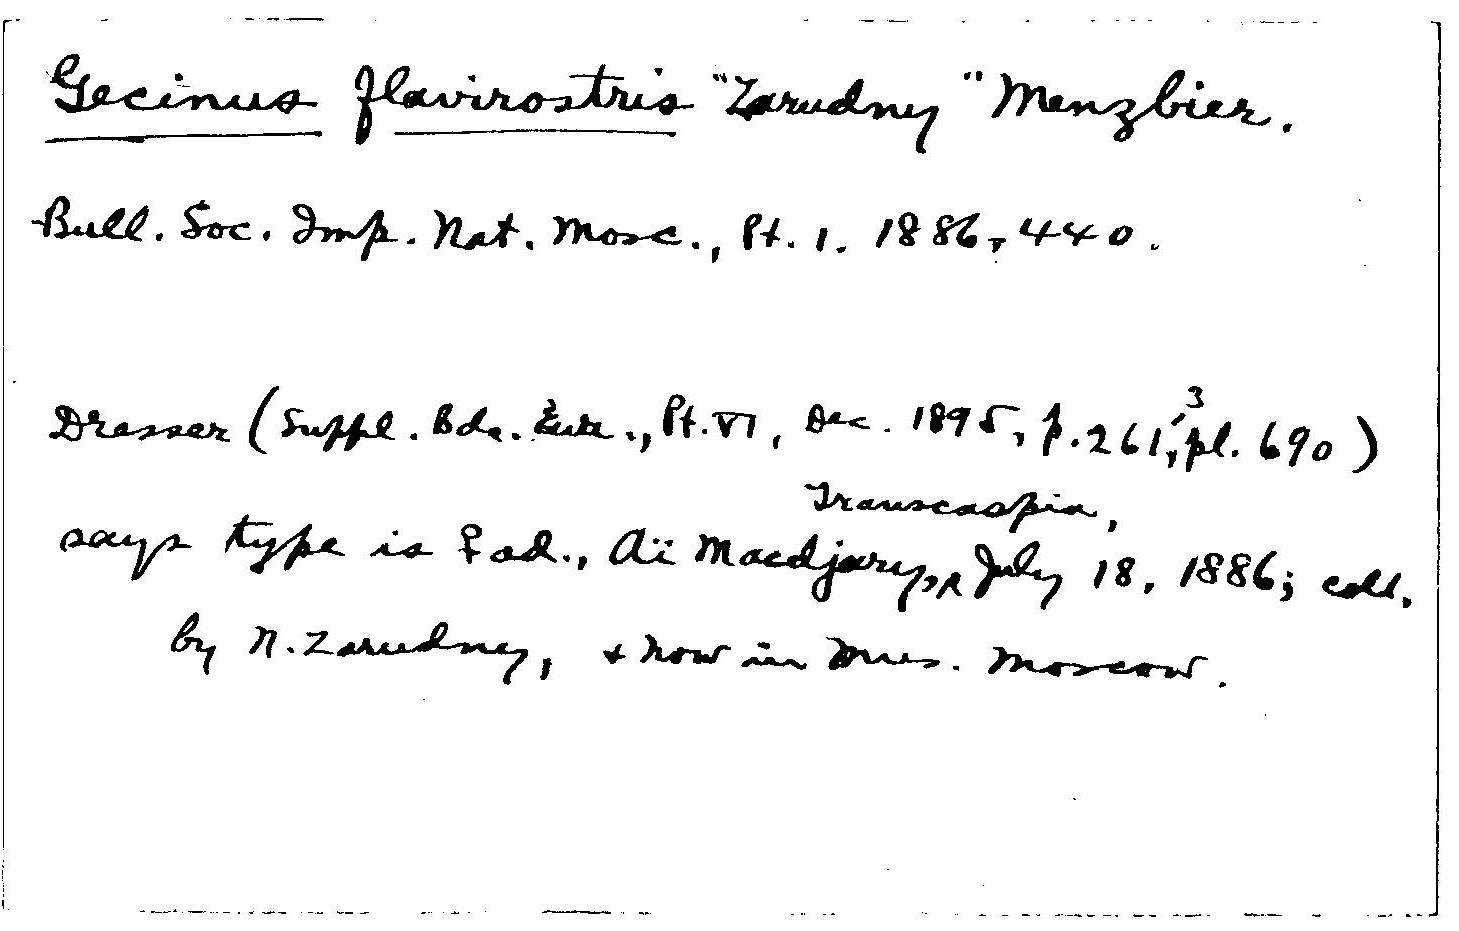 Gecinus flavirostris "Zarudny" Menzbier.
Bull. Soc. Imp. Nat. Mosc., Pt. 1. 1886, 440.
Dresser (Suppl. Bds. Eur., Pt. VI, Dec. 1895, p. 261-3, pl. 690)
says type is ♀ ad., Aï Macdjary, Transcaspia, July 18, 1886; coll.
by N. Zarudney, + now in Mus. Moscow.